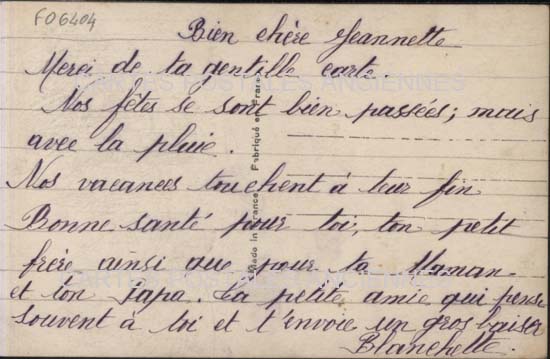 FO6404
Bien chère Jeannette
Merci de ta gentille carte
CARTES POSTALES ANCIENNES
Nos fêtes se sont bien passées; mais
avec la pluie.
Nos vacances touchent à leur fin
Bonne santé pour toi, ton petit
frère ainsi que pour ta Maman
CARTES POSTALES ANCIENNES
et ton Papa. Ta petite amie qui pense
souvent à toi et t'envoie un gros baiser
Blanchette.
Made in France - Fabriqué en France